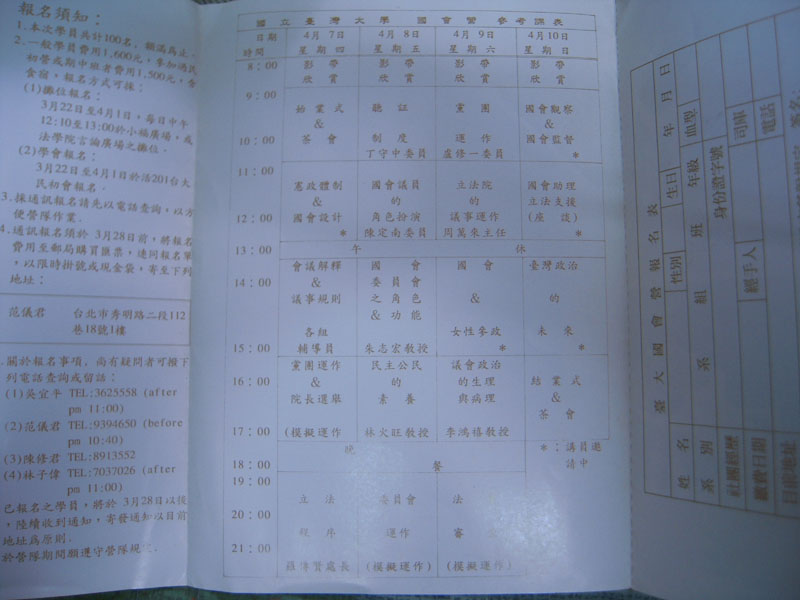 報名須知：
1.本次學員共計100名，額滿為止．
2.一般學員費用1,600元，參加過民
初營或期中班者費用1,500元，含
食宿，報名方式可採：
(1)攤位報名：
3月22日至4月1日，每日中午
12:10至13:00於小福廣場，或
法學院言論廣場之攤位．
(2)學會報名：
3月22日至4月1日於活201台大
民初會報名．
3.採通訊報名請先以電話查詢，以方
便營隊作業．
4.通訊報名須於 3月28日前，將報名
費用至郵局購買匯票，連同報名單
，以限時掛號或現金袋，寄至下列
地址：
范儀君 台北市秀明路二段112
巷18號1樓
關於報名事項，尚有疑問者可撥下
列電話查詢或留話：
(1)吳宜平 TEL:3625558 (after
pm 11:00)
(2)范儀君 TEL:9394650 (before
pm 10:40)
(3)陳修君 TEL:8913552
(4)林子偉 TEL:7037026 (after
pm 11:00)
已報名之學員，將於 3月28日以後
，陸續收到通知，寄發通知以目前
地址為原則．
於營隊期間願遵守營隊規定．
國立臺灣大學 國會營 參考課表
日期 4月7日 4月8日 4月9日 4月10日
時間 星期四 星期五 星期六 星期日
8：00 影帶 影帶 影帶 影帶
欣賞 欣賞 欣賞 欣賞
9：00
始業式 聽証 黨團 國會觀察
& &
10：00 茶會 制度 運作 國會監督
丁守中委員 盧修一委員 *
11：00
憲政體制 國會議員 立法院 國會助理
& 的 的 立法支援
12：00 國會設計 角色扮演 議事運作 (座談)
* 陳定南委員 周萬來主任 *
13：00 午 休
會議解釋 國會 國會 臺灣政治
14：00 & 委員會
議事規則 之角色 & 的
& 功能
各組 女性參政 未來
15：00 輔導員 朱志宏教授 * *
黨團運作 民主公民 議會政治
16：00 & 的 的生理 結業式
院長選舉 素養 與病理 &
茶會
17：00 (模擬運作 林火旺教授 李鴻禧教授
晚 *：講員邀
18：00 餐 請中
19：00
立法 委員會 法
20：00
程序 運作 審
21：00
羅傳賢處長 (模擬運作) (模擬運作)
臺大國會營報名表
姓名 性別 生日 年 月 日
系別 系 組 班 年級 血型
社團經歷 身份證字號
繳費日期 經手人 司庫
目前地址 電話
簽名：